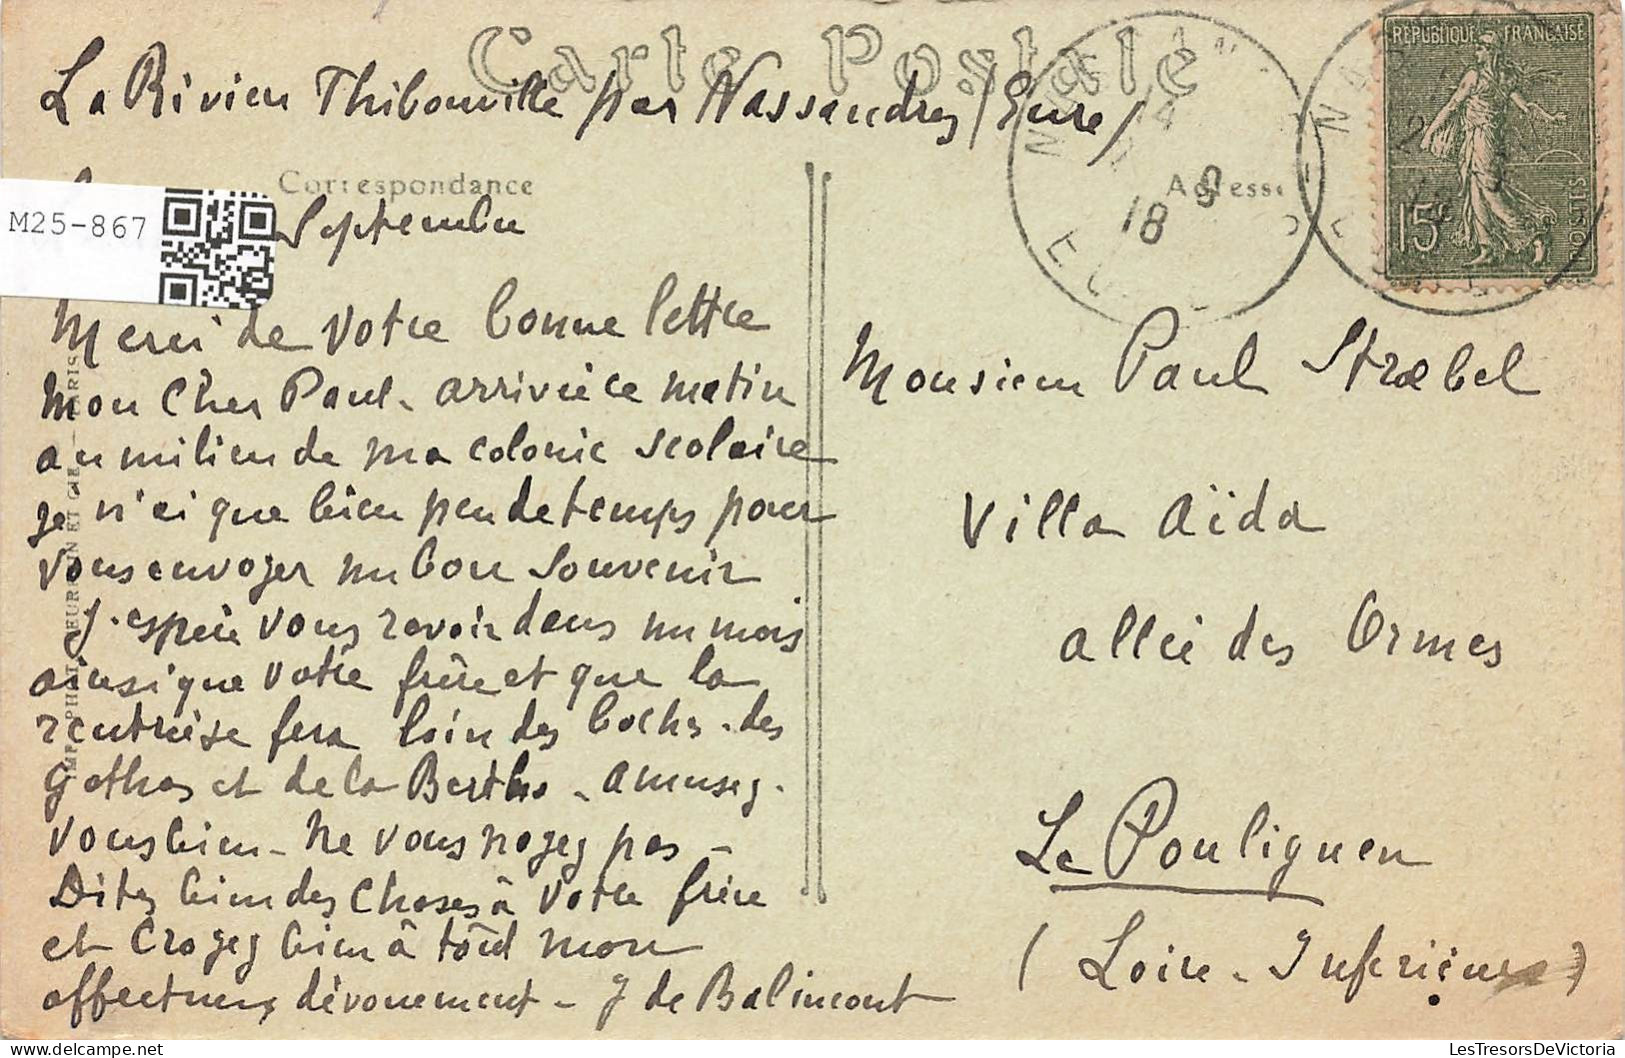 Carte Postale
La Rivière Thibouville par Nassandres (Eure)
Correspondance
Adresse
M25-867
Septembre
REPUBLIQUE FRANÇAISE
15
POSTES
18
Merci de votre bonne lettre
mon cher Paul - arrivée ce matin
au milieu de ma colonie scolaire
je n'ai que bien peu de temps pour
vous envoyer un bon souvenir
J'espère vous revoir dans un mois
ainsi que votre frère et que la
rentrée se fera loin des boches - des
Gothas et de la Bertha - amusez-
vous bien - Ne vous noyez pas -
Dites bien des choses à votre frère
et croyez bien à tout mon
affectueux dévouement - J de Balincourt
Monsieur Paul Strœbel
Villa Aïda
allée des Ormes
Le Pouliguen
(Loire-Inférieure)
LesTresorsDeVictoria